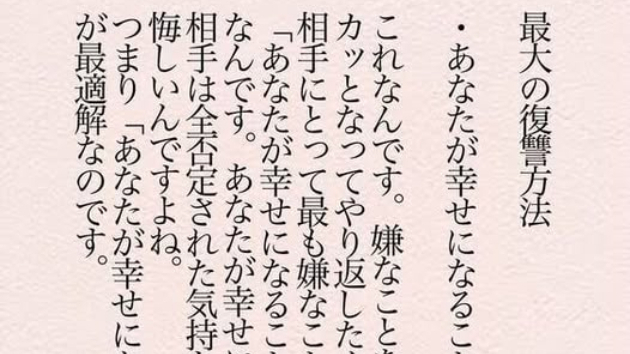 最大の復讐方法
・あなたが幸せになるこ
これなんです。嫌なこと
カッとなってやり返した
相手にとって最も嫌なこ
「あなたが幸せになるこ
なんです。あなたが幸せ
相手は全否定された気持
悔しいんですよね。
つまり「あなたが幸せに
が最適解なのです。